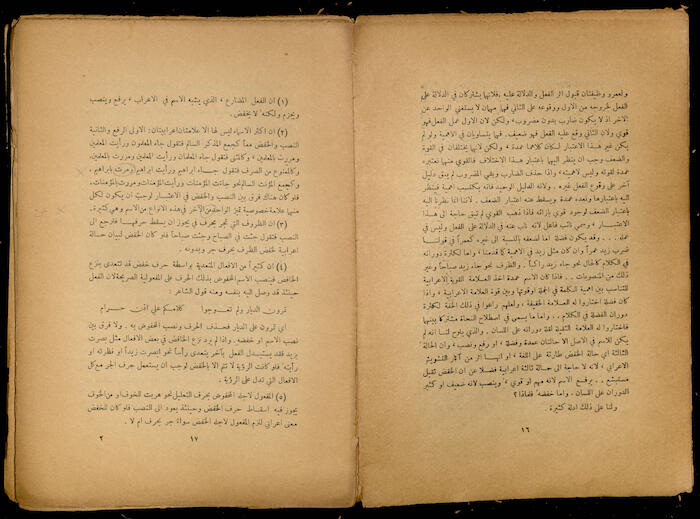 ولعمرو وظيفتان قبول اثر الفعل والدلالة عليه ، فلانها يشتركان في الدلالة على
الفعل لخروجه من الاول ووقوعه على الثاني فهما مهمان لا يستغني الواحد عن
الآخر اذ لا يكون ضارب بدون مضروب ، ولكن لان الاول عمل الفعل فهو
قوي ولان الثاني وقع عليه الفعل فهو ضعيف. فهما يتساويان في الاهمية ولو لم
يكن غير هذا الاعتبار لكان كلاهما عمدة ، ولكن لانهما يختلفان في القوة
والضعف وجب ان ينظر اليهما باعتبار هذا الاختلاف فالقوي منهما نعتبره
عمدة لقوته وليس لاهميته ، واذا حذف الضارب وبقي المضروب لم يبق دليل
آخر على وقوع الفعل غيره . ولانه الدليل الوحيد فانه يكتسب اهمية فينظر
اليه باعتبارها ونعده عمدة ويسقط عنه اعتبار الضعف . لاننا انما نظرنا اليه
باعتبار الضعف لوجود قوي بازائه فاذا ذهب القوي لم تبق حاجة الى هذا
الاعتبار ، وسمي نائب فاعل لانه ناب عنه في الدلالة على الفعل وليس في
عمله ... وقد يكون فضلة اما لضعفه بالنسبة الى غيره كعمراً في قولنا
ضرب زيد عمراً وان كان مثل زيد في الاهمية كما قدمنا ، واما لكثرة دورانه
في الكلام كالحال نحو جاء زيد راكباً . والظرف نحو جاء زيد صباحاً وغير
ذلك من المنصوبات . . فاذا كان الاسم عمدة اخذ العلامة القوية الاعرابية
للتناسب بين اهمية الكلمة في الجملة اوقوتها وبين قوة العلامة الاعرابية ، واذا
كان فضلة اختاروا له العلامة الخفيفة ، ولعلهم راعوا في ذلك الخفة لكثرة
دوران الفضلة في الكلام . . واما ما يسمى في اصطلاح النحاة مشتركا بينهما
فاختاروا له العلامة الثقيلة لقلة دورانه على اللسان . والذي يلوح لنا انه لم
يكن للاسم في الاصل الا حالتان عمدة وفضلة ، او رفع ونصب ، وان الحالة
الثالثة اي حالة الخفض طارئة على اللغة ، او انها اثر من آثار التشويش
الاعرابي ، لانه لا حاجة الى حالة ثالثة اعرابية فضلا عن ان الخفض ثقيل
مستبشع . . يرفع الاسم لانه مهم او قوي ، وينصب لانه ضعيف او كثير
الدوران على اللسان . واما خفضه فلماذا ؟
ولنا على ذلك ادلة كثيرة .
١٦
(١) ان الفعل المضارع ، الذي يشبه الاسم في الاعراب ، يرفع وينصب
ويجزم ولكنه لا يخفض.
(٢) ان اكثر الاسماء ليس لها الا علامتان اعرابيتان: الاولى الرفع والثانية
النصب والخفض معاً كجمع المذكر السالم فتقول جاء المعلمون ورأيت المعلمين
ومررت بالمعلمين ، وكالمثنى فتقول جاء المعلمان ورأيت المعلمين ومررت بالمعلمين.
وكالممنوع من الصرف فتقول جـاء ابراهيم ورأيت ابراهيم ومررت بابراهيم .
وكجمع المؤنث السالم نحو جاءت المؤمنات ورأيت المؤمنات ومررت بالمؤمنات.
فلو كان هناك فرق بين النصب والخفض في الاعتبار لوجب ان يكون لكل
منهما علامة خصوصية تميز الواحد من الآخر في هذه الانواع من الاسم وهي كثيرة.
(٣) ان الظروف التي تجر بحرف في يجوز ان يسقط حرفها فترجع الى
النصب فتقول جئت في الصباح وجئت صباحاً فلو كان الخفض لبيان حالة
اعرابية لخفض الظرف بحرف جر وبدونه .
(٤) ان كثيراً من الافعال المتعدية بواسطة حرف خفض قد تتعدى بنزع
الخافض فينصب الاسم المخفوض بذلك الحرف على المفعولية الصريحة لان الفعل
حينئذ قد وصل اليه بنفسه ومنه قول الشاعر :
تمرون الديار ولم تعوجوا كلامكم علي اذن حرام
اي تمرون على الديار فحذف الحرف ونصب المخفوض به . ولا فرق بين
نصب الاسم او خفضه. واذا لم يرد نزع الخافض في بعض الافعال مثل بصرت
بزيد فقد يستبدل الفعل بآخر يتعدى رأساً نحو ابصرت زيداً او نظرته او
رأيته. فلو كانت الرؤية لا تتم الا بالخفض لوجب ان يستعمل حرف الجر مع كل
الافعال التي تدل على الرؤية .
(٥) المفعول لاجله المخفوض بحرف التعليل نحو هربت للخوف او من الخوف
يجوز فيه اسقاط حرف الخفض وحينئذ يعود الى النصب فلو كان للخفض
معنى اعرابي للزم المفعول لاجله الخفض سواء جر بحرف ام لا .
١٧
٢